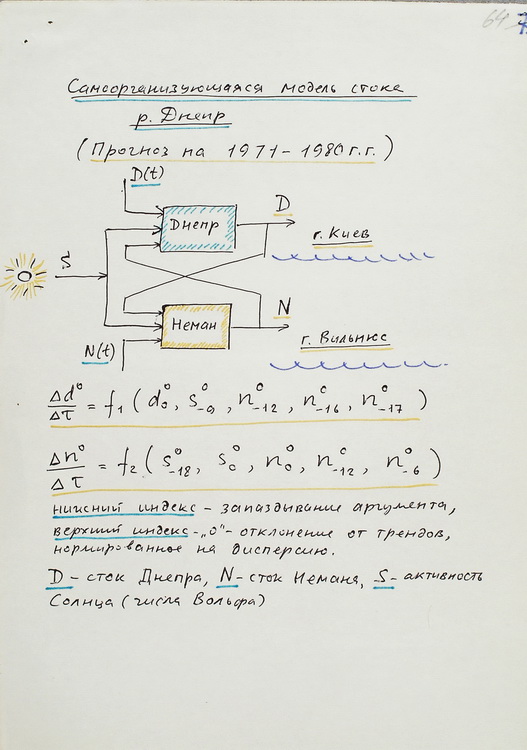 64
Самоорганизующаяся модель стока
р. Днепр
(Прогноз на 1971-1980 г.г.)
D(t)
Днепр
D
г. Киев
S
Неман
N
г. Вильнюс
N(t)
Δd⁰/Δτ = f₁ (d⁰₀, s⁰₋₉, n⁰₋₁₂, n⁰₋₁₆, n⁰₋₁₇)
Δn⁰/Δτ = f₂ (s⁰₋₁₈, s⁰₀, n⁰₀, n⁰₋₁₂, n⁰₋₆)
нижний индекс - запаздывание аргумента,
верхний индекс - „о"- отклонение от трендов,
нормированное на дисперсию.
D - сток Днепра, N - сток Немана, S - активность
Солнца (числа Вольфа)